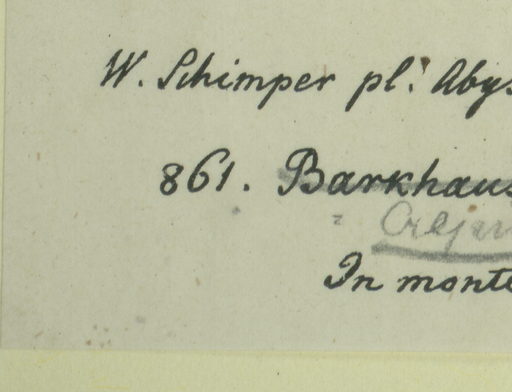 W. Schimper pl. Abys
861. Barkhaus
In monte